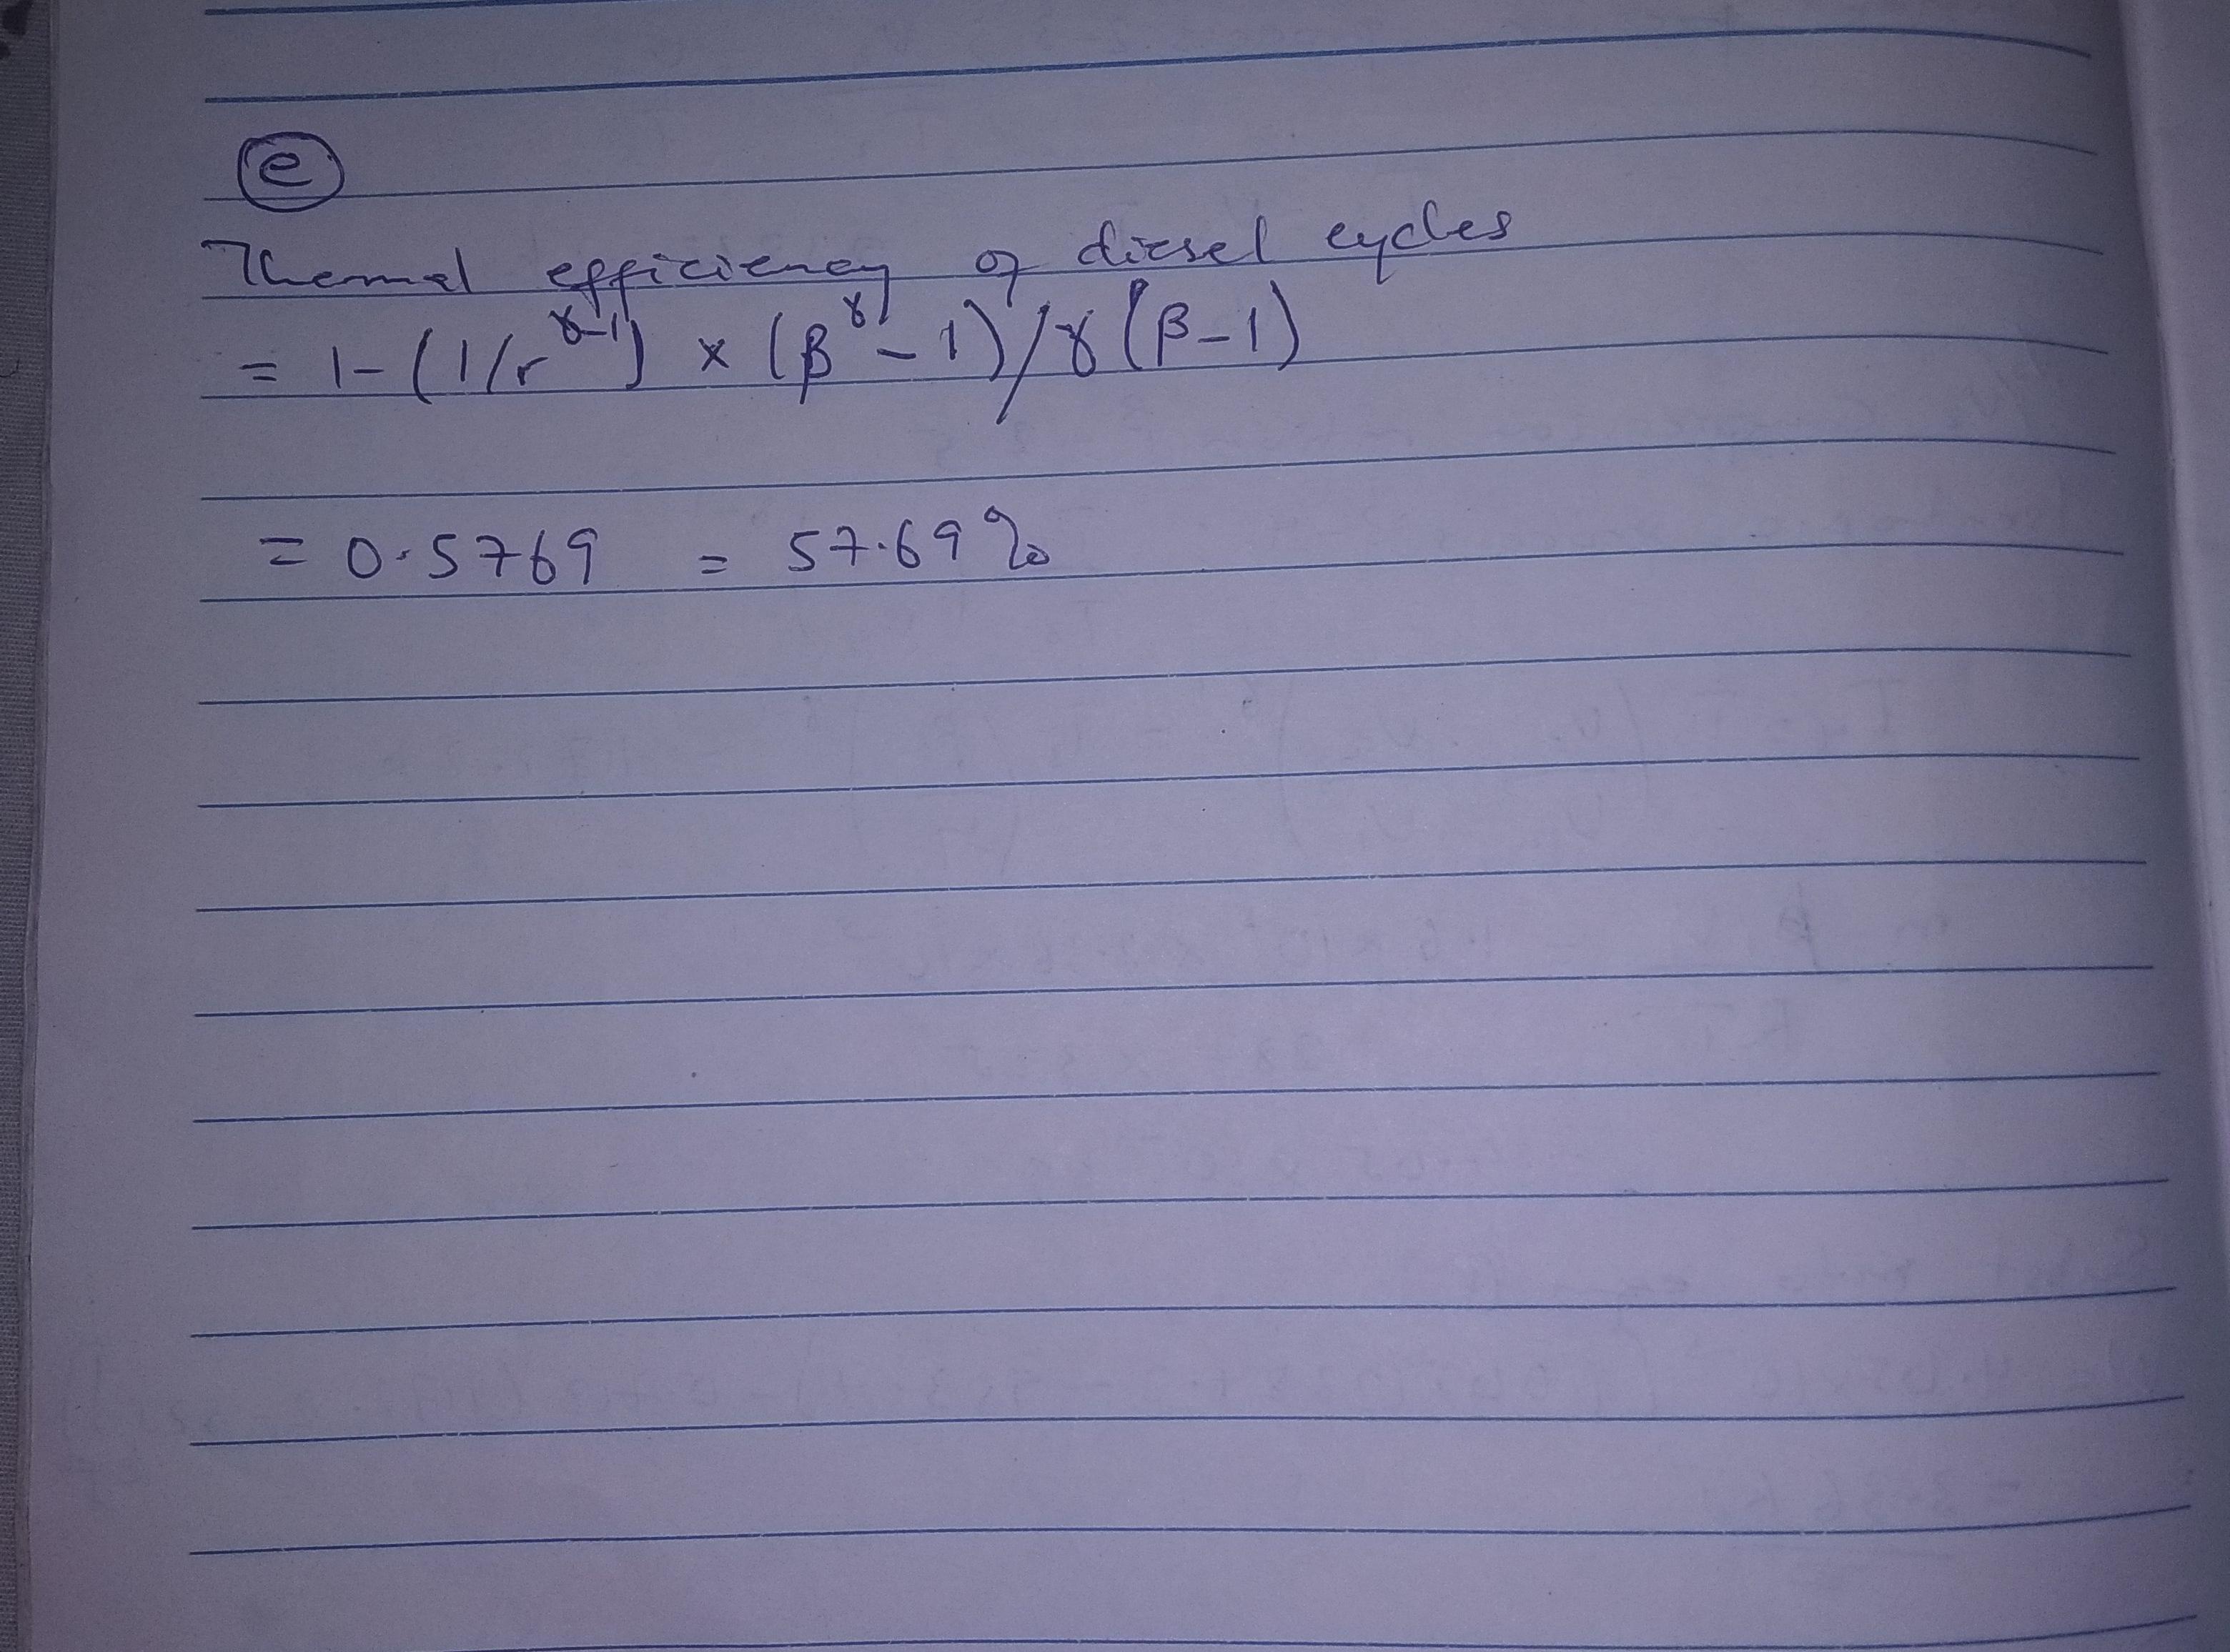 e
Thermal efficiency of diesel cycles
= 1-(1/r^γ-1) × (β^γ - 1)/γ(β-1)
= 0.5769 = 57.69%